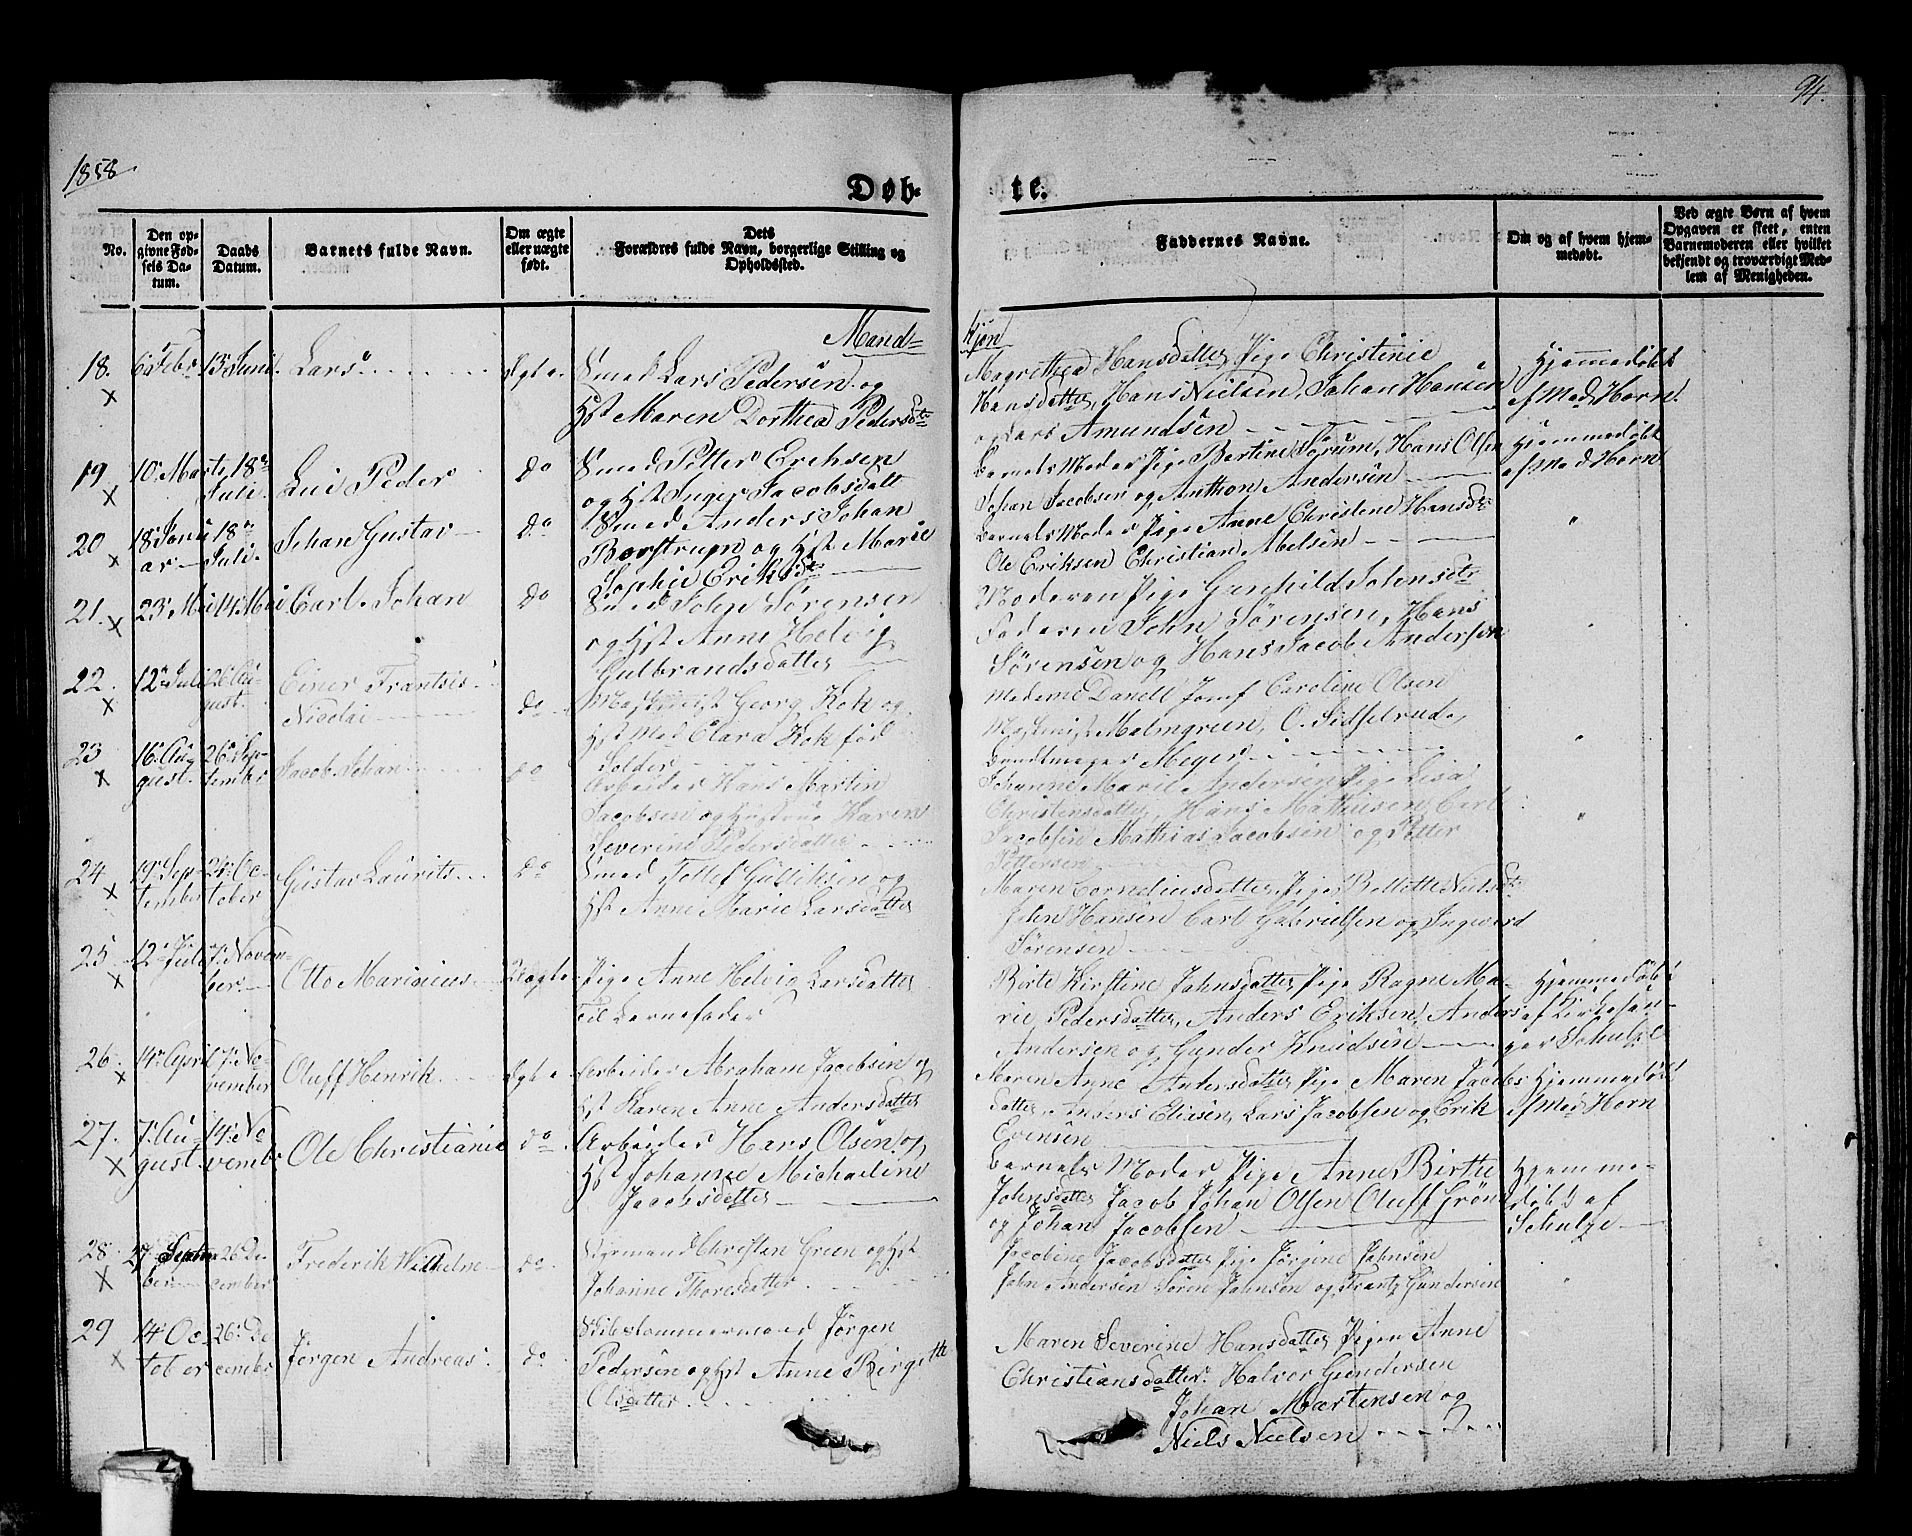 1858
94.
Døb-
te.
No.
Den op-
givne Fød-
sels Da-
tum.
Daabs
Datum.
Barnets fulde Navn.
Om ægte
eller uægte
født.
Dets
Forældres fulde Navn, borgerlige Stilling og
Opholdssted.
Faddernes Navne.
Om og af hvem hjem-
medøbt.
Ved ægte Børn af hvem
Opgaven er skeet, enten
Barnemoderen eller hvilket
bekjendt og troværdigt Med-
lem af Menigheden.
Mand-
kjøn
18. 6 Febr 13 Juni Lars Ægte Smed Lars Pedersen og
Hst Maren Dorthea Pedersdtr
Magrethea Hansdatter, Pige Christinie
Hansdatter, Hans Nielsen, Johan Hansen
og Lars Amundsen
Hjemmedøbt
af Mad Horn
19 10 Marts 18
Juli Lui Peder do Smed Petter Eriksen
og Hst Inger Jacobsdatt
Barnets Moder Pige Bertine Sørum, Hans Olsen
Johan Jacobsen og Anthon Andersen
Hjemmedøbt
af Mad Horn
20 18 Janu 18
ar Juli Johan Gustav do Smed Anders Johan
og Hst Marie
Sophie Eriksdtr
Barnets Moder Pige Anne Christene Hansdtr
Ole Eriksen Christian Abelsen
"
21. 23 Mai Carl Johan do Smed John Sørensen
og Hst Anne Helvig
Gulbrandsdatter
Moderen Pige Gunhild Johnsdtr
Faderen John Sørensen, Hans
Sørensen og Hans Jacob Andersen
"
22. 12 Juli 26 Au-
gust. Einer Frantsis
Nicolai do Maskinist Georg Kok og
Hst Mad Clara Kok fød
Solder
Mademe Danell Jomf Caroline Olsen
Maskinist Malmgreen, O. Sidselrud,
Bundtmager Meger
"
23 16 Au- 26 Sep-
gust. tember Jacob Johan do Arbeider Hans Martin
Jacobsen og Hustrue Karen
Severine Pedersdatter
Johanne Marie Andersen Pige Lisa
Christensdatter, Hans Mathiesen, Carl
Jacobsen Mathias Jacobsen og Petter
Pettersen
"
24 19 Sep- 24 Oc-
tember tober Gustav Laurits do Smed Tollef Gulliksen og
Hst Anne Marie Larsdatter
Maren Corneliusdatter, Pige Nielsdtr
John Hansen Carl Gabrielsen og Ingvard
Sørensen
25 12 Juli 7 Novem-
ber Otto Marinius Uægte Pige Anne Helvig Larsdatter
Til Barnefader
Birte Kirstine Johnsdatter, Pige Ragne Ma-
rie Pedersdatter, Anders Eriksen, Anders
Andersen og Gunder Knudsen
Hjemmedøbt
af Kirkesan-
ger Schulze
26 14 April 7 No-
vember Oluff Henrik Ægte Arbeider Abraham Jacobsen og
Hst Karen Anne Andersdatter
Maren Anne Andersdatter Pige Maren Jacobs
datter, Anders Eliesen, Lars Jacobsen og Erik
Evensen
Hjemmedøbt
af Mad Horn
27. 7 Au- 14 No-
gust. vembr Ole Christianie do Arbeider Hans Olsen og
Hst Johanne Michaeline
Jacobsdatter
Barnets Moder Pige Anne Birthe
Johnsdatter Jacob Johan Olsen Oluff Grøn
og Johan Jacobsen
Hjemme-
døbt af
Schulze
28 27 Septem 26 De-
ber cember Frederik Wilhelm do Styrmand Christen Green og Hst
Johanne Thoresdatter
Jacobine Jacobsdatter Pige Jørgine Johnsen
John Andersen Søren Johnsen og Frantz Gundersen
"
29 14 Oc- 26 De-
tober cembr Jørgen Andreas do Skibstømmermand Jørgen
Pedersen og Hst Anne Birgette
Olsdatter
Maren Severine Hansdatter, Pigen Anne
Christiansdatter. Halvor Gundersen
Johan Martensen og
Niels Nielsen